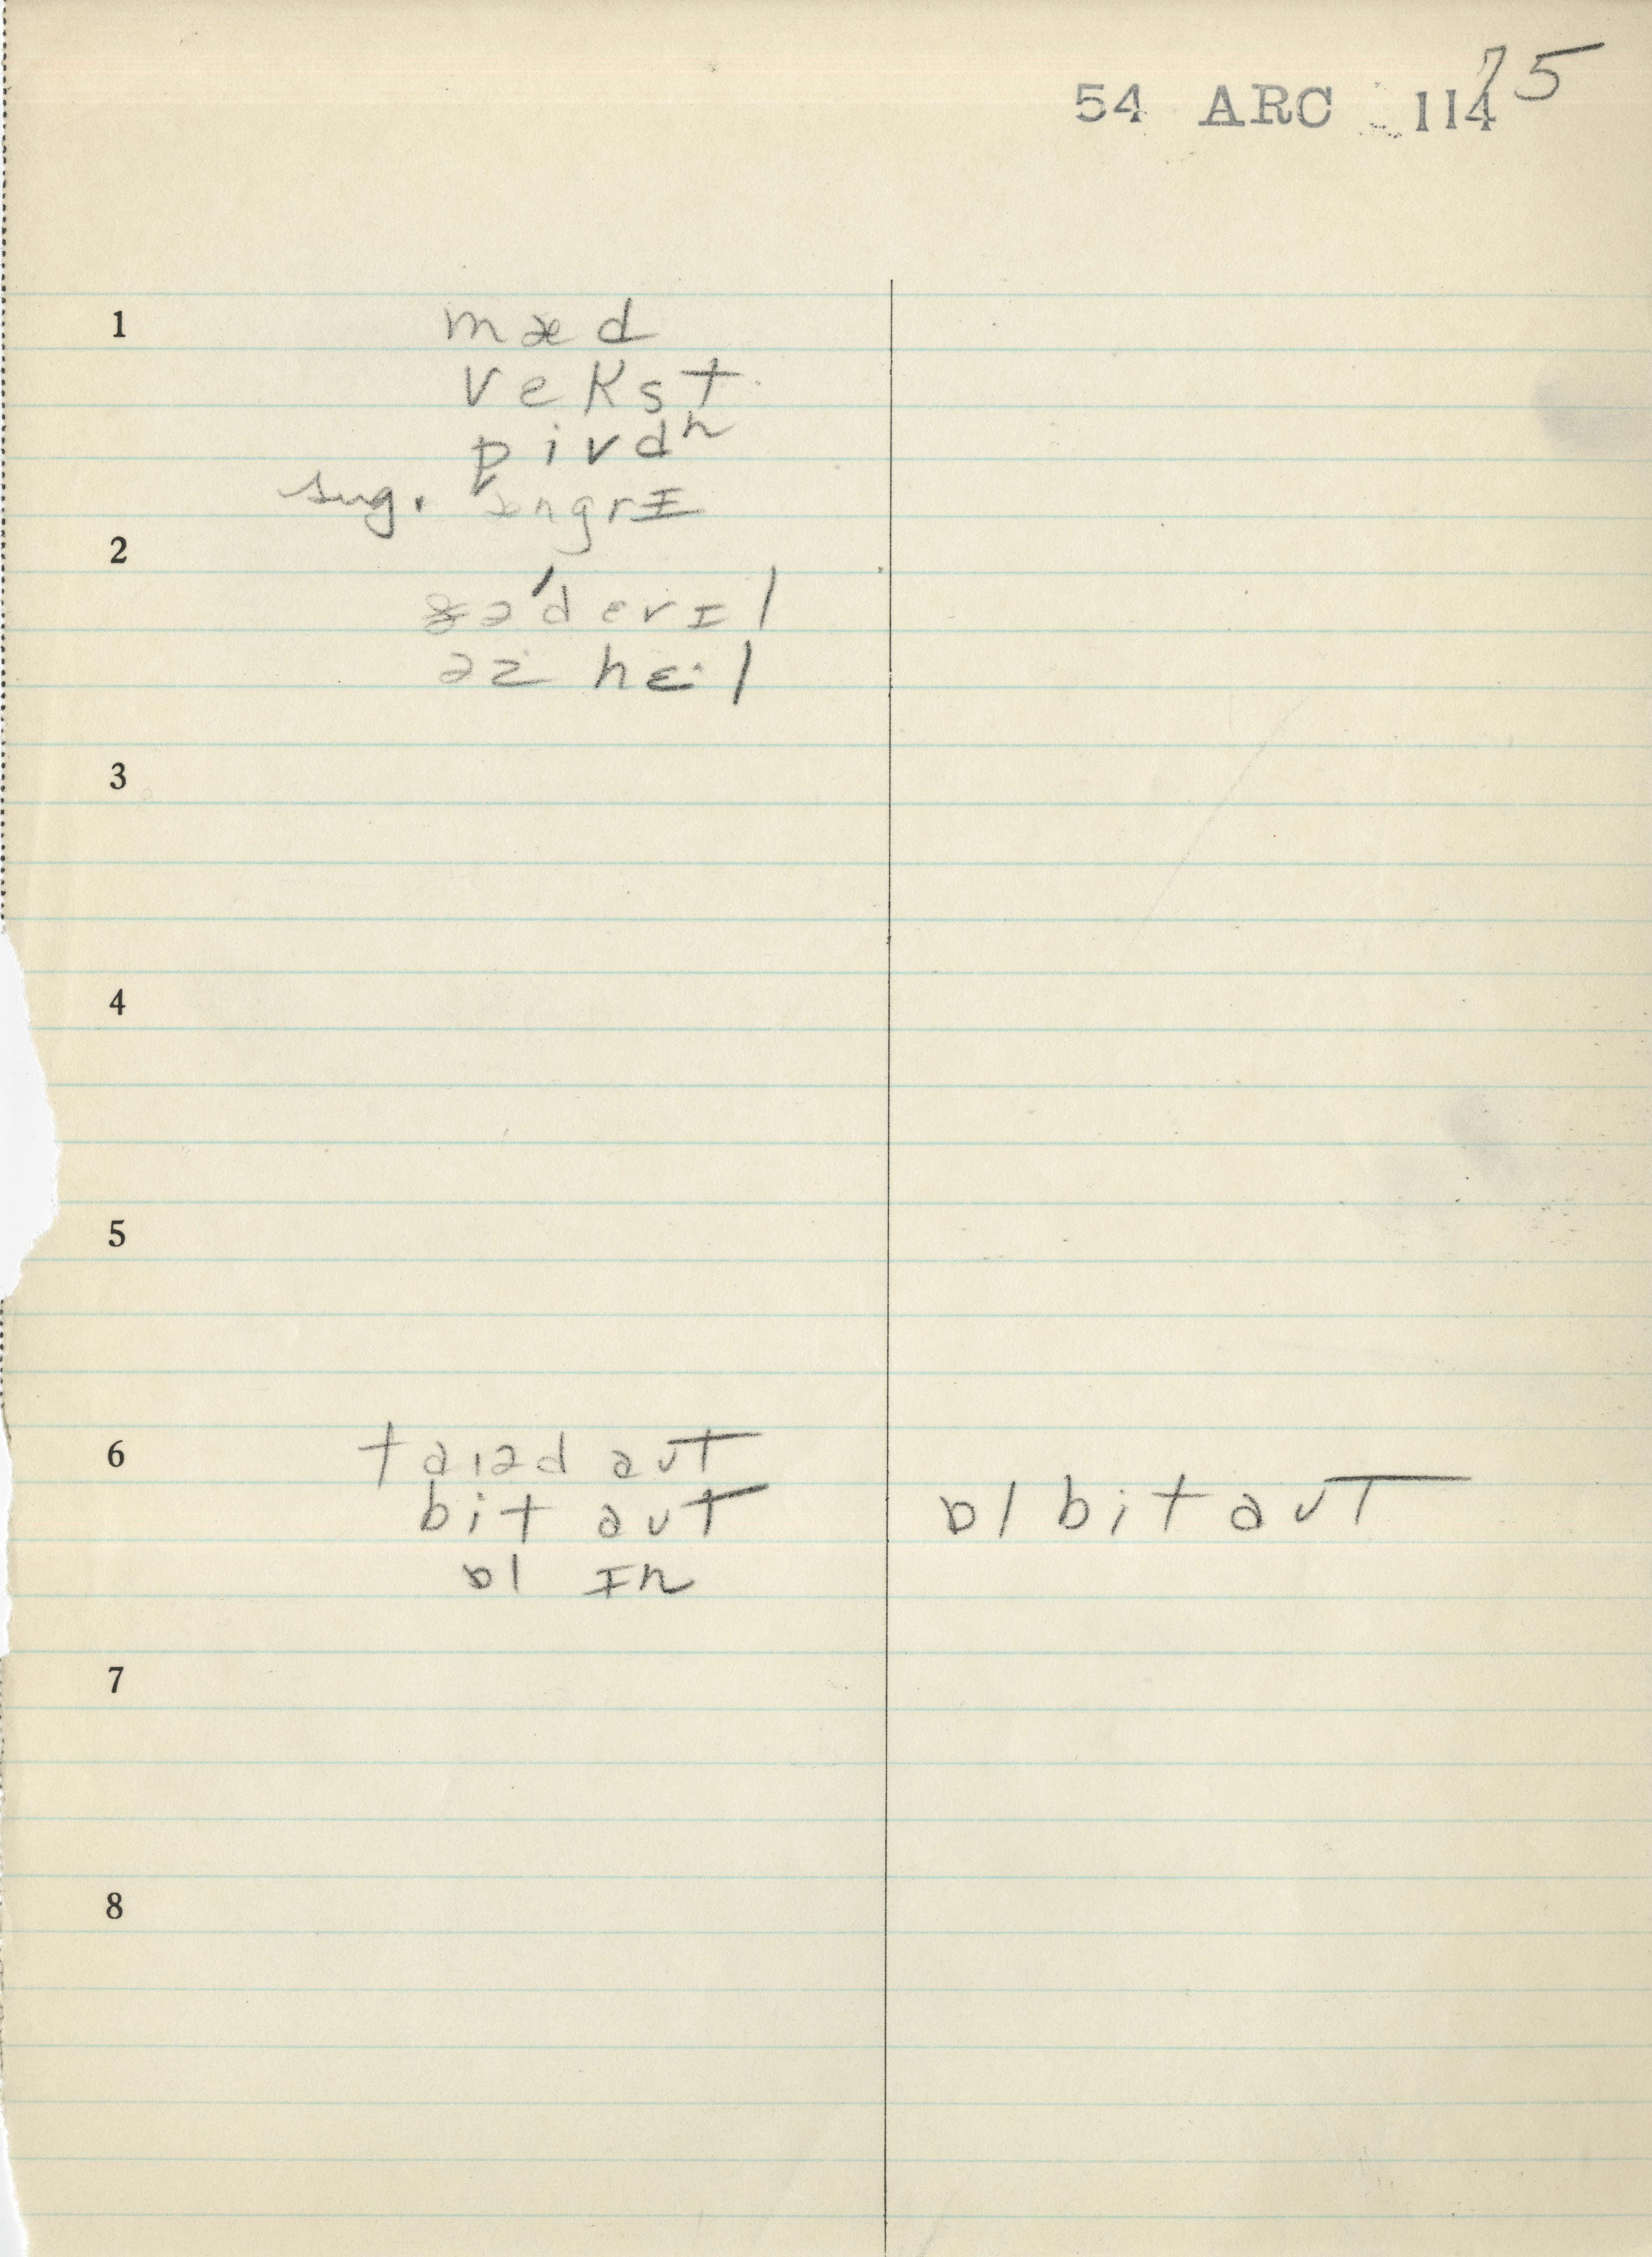 75
54 ARC 114
1 mæd
vekst
pivdʰ
sug. æŋgrɪ
2 ə'devɪl
əz hɛ·l
3
4
5
6 taɪəd aʊt
bit aʊt ɒl bit aʊt
ɒl ɪn
7
8